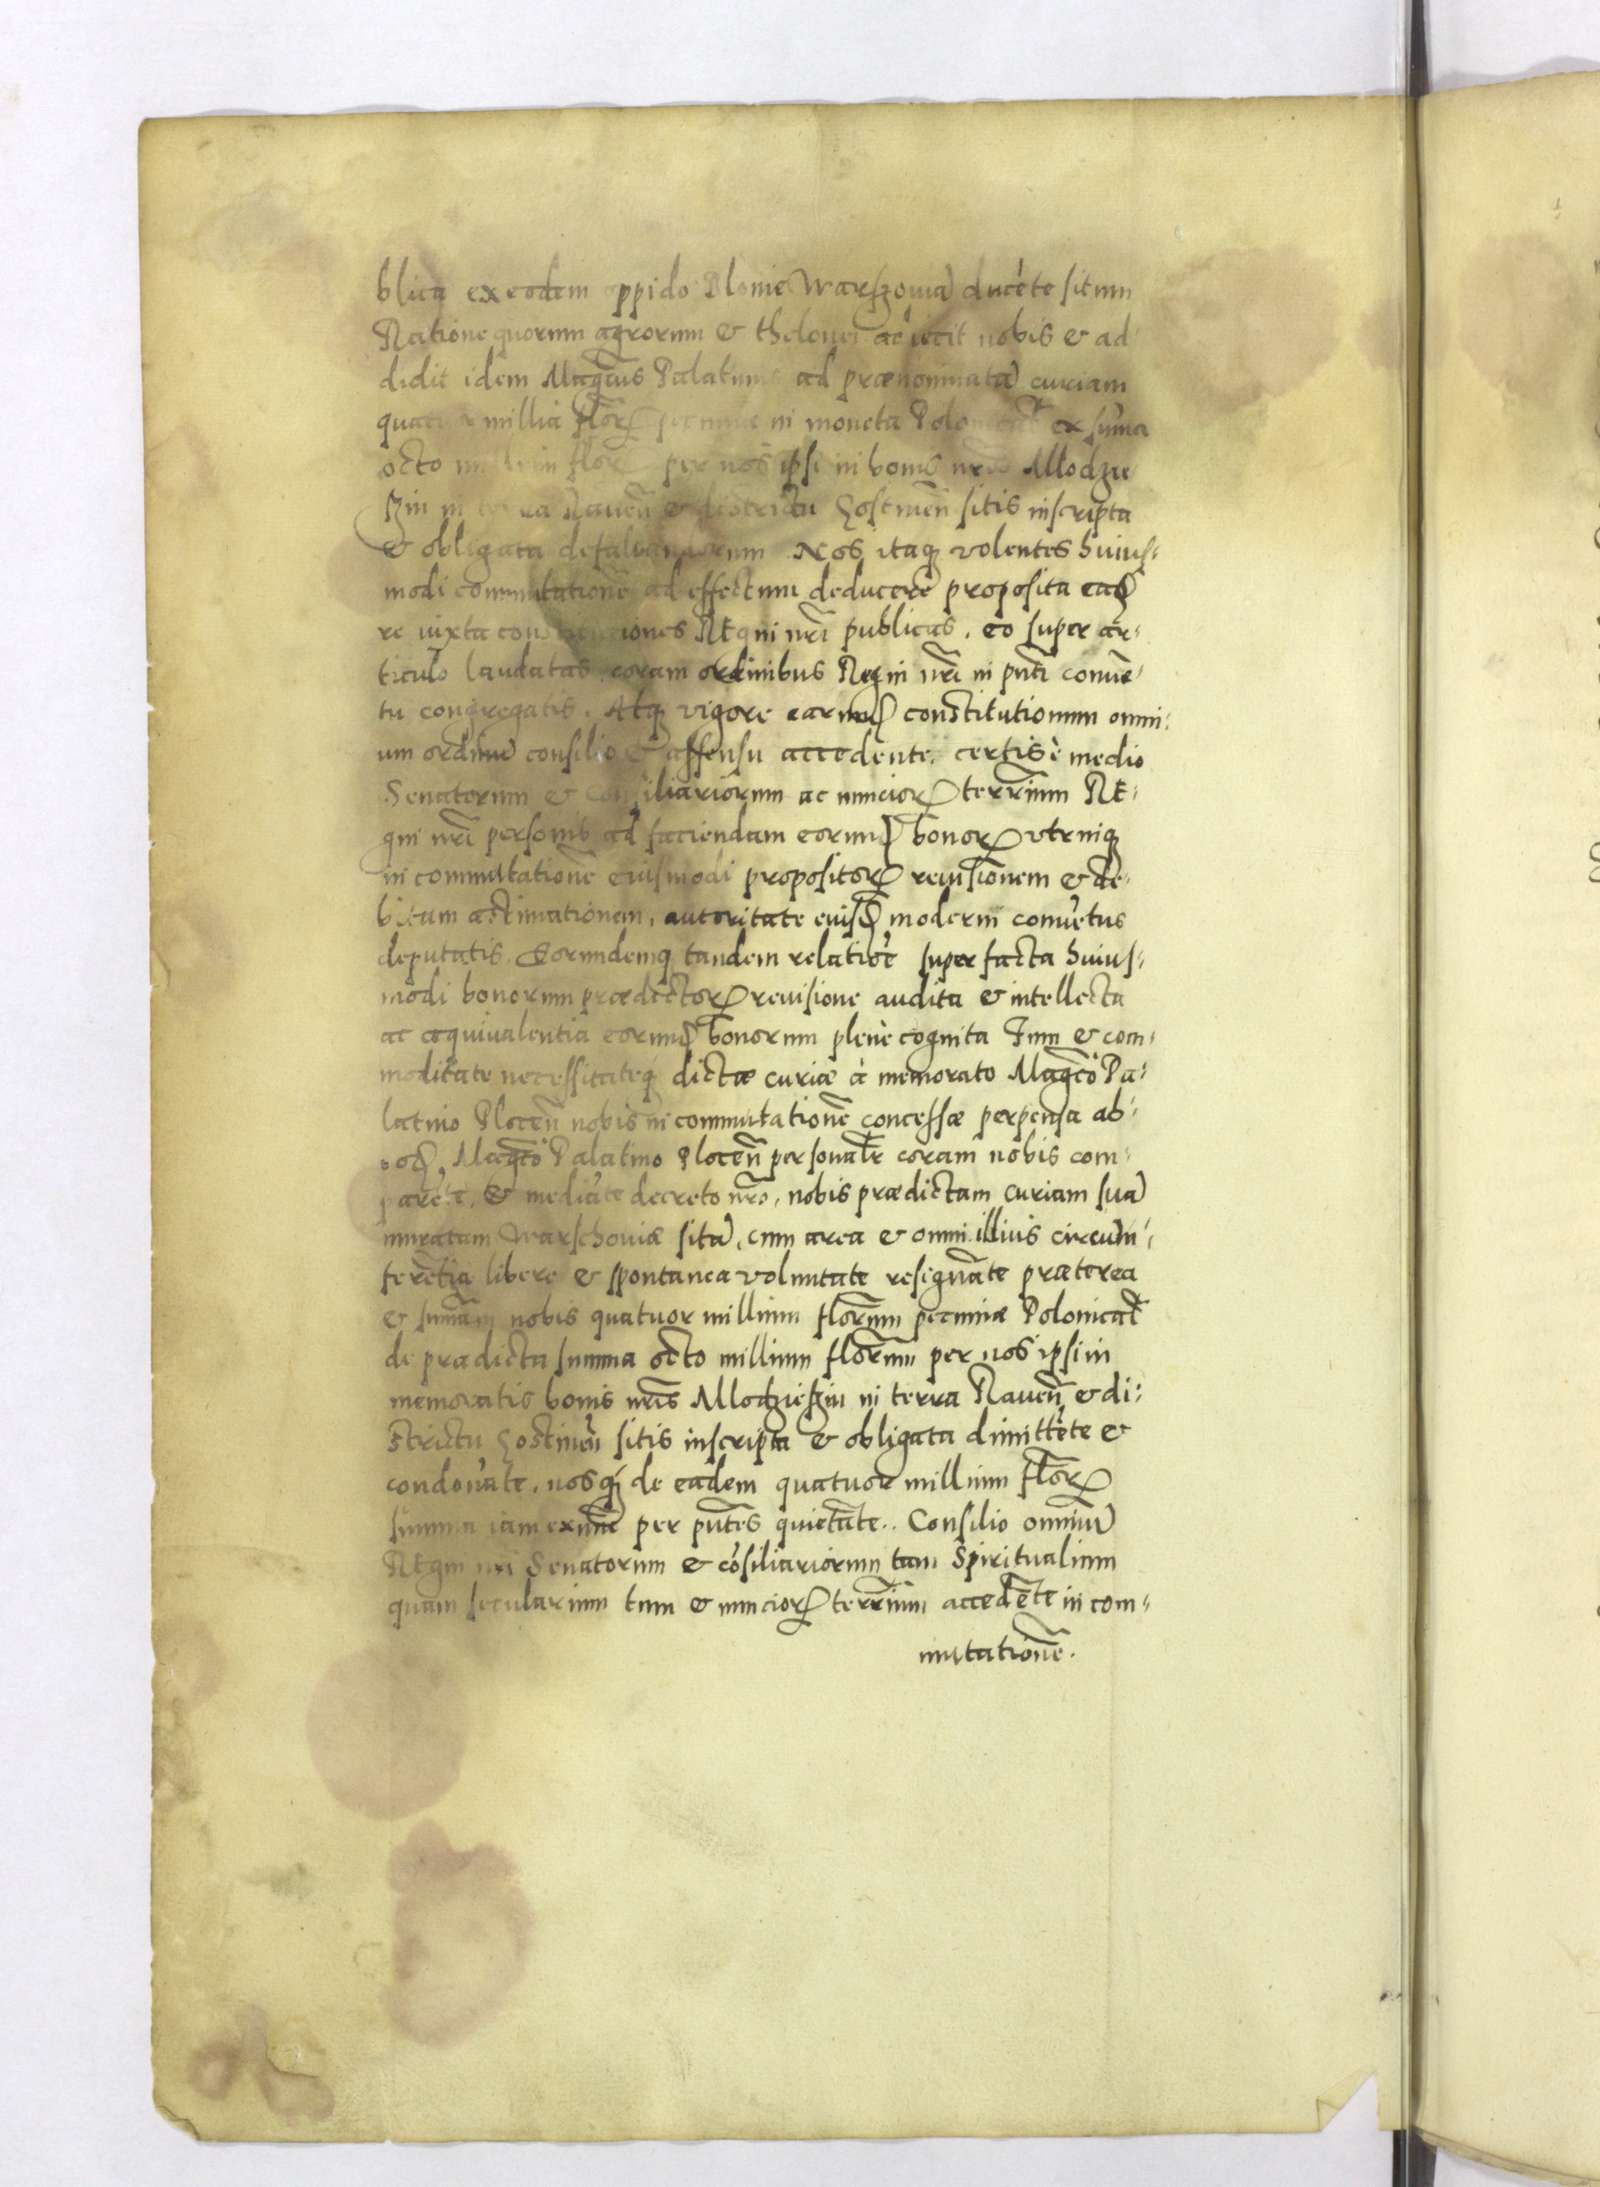 blica ex eodem oppido Blonie Warszouiã ducẽte situm
Ratione quorum agrorum & thelonei adiecit nobis & ad
didit idem Magc̃us Palatinus ad prænominatã curiam
quatuor millia flor̃ pecuniæ in moneta ex sum̃a
octo millium flor̃ per nos ipsi in bonis nr̃is Mlodzie
szin in terra Rauen̄ & districtu Gostinen̄ sitis inscripta
& obligata defalcandorum. Nos itaq volentes huius-
modi commutationẽ ad effectum deducere proposita ead
re iuxta constitutiones Regni nr̃i publicas, eo super ar-
ticulo laudatas coram ordinibus Regni nr̃i in pñti conuẽ-
tu congregatis. Atq vigore earund constitutionum omni-
um ordinũ consilio & assensu accedente, certis è medio
Senatorum & Consiliariorum ac nuncior terrãrum Re-
gni nr̃i personis ad faciendam eorund bonor vtrinq
in commutationẽ eiusmodi propositor reuisionem & de-
bitam æstimationem, autoritate eiusd moderni conuẽtus
deputatis. Eorundemq tandem relatiõe super facta huius-
modi bonorum prædictor reuisione audita & intellecta
ac æquiualentia eorund bonorum plenè cognita Tum & com-
moditate necessitateq dictæ curiæ à memorato Magc̃o Pa-
latino Plocen̄ nobis in commutationẽ concessæ perpensa ab
eod, Magc̃o Palatino Plocen̄ personalr̃ coram nobis com-
parẽte, & mediãte decreto nr̃o, nobis prædictam curiam suã
muratam Warschouiæ sitã, cum area & omni illius circum-
ferẽtia libere & spontanea volũtate resignãte præterea
& summam nobis quatuor millium florẽnum pecuniæ Polonical
de prædicta summa octo millium florẽnum per nos ipsi in
memoratis bonis nr̃is Mlodzieszin in terra Rauen̄ & di-
strictu Gostinen̄ sitis inscripta & obligata dimittẽte &
condonãte, nosq de eadem quatuor millium flor̃
summa iam exnũc per pñtes quietãte.. Consilio omniũ
Regni nr̃i Senatorum & cõsiliariorum tam Spiritualium
quam secularium tum & nuncior terrãrum accedẽte in com-
mutationẽ.